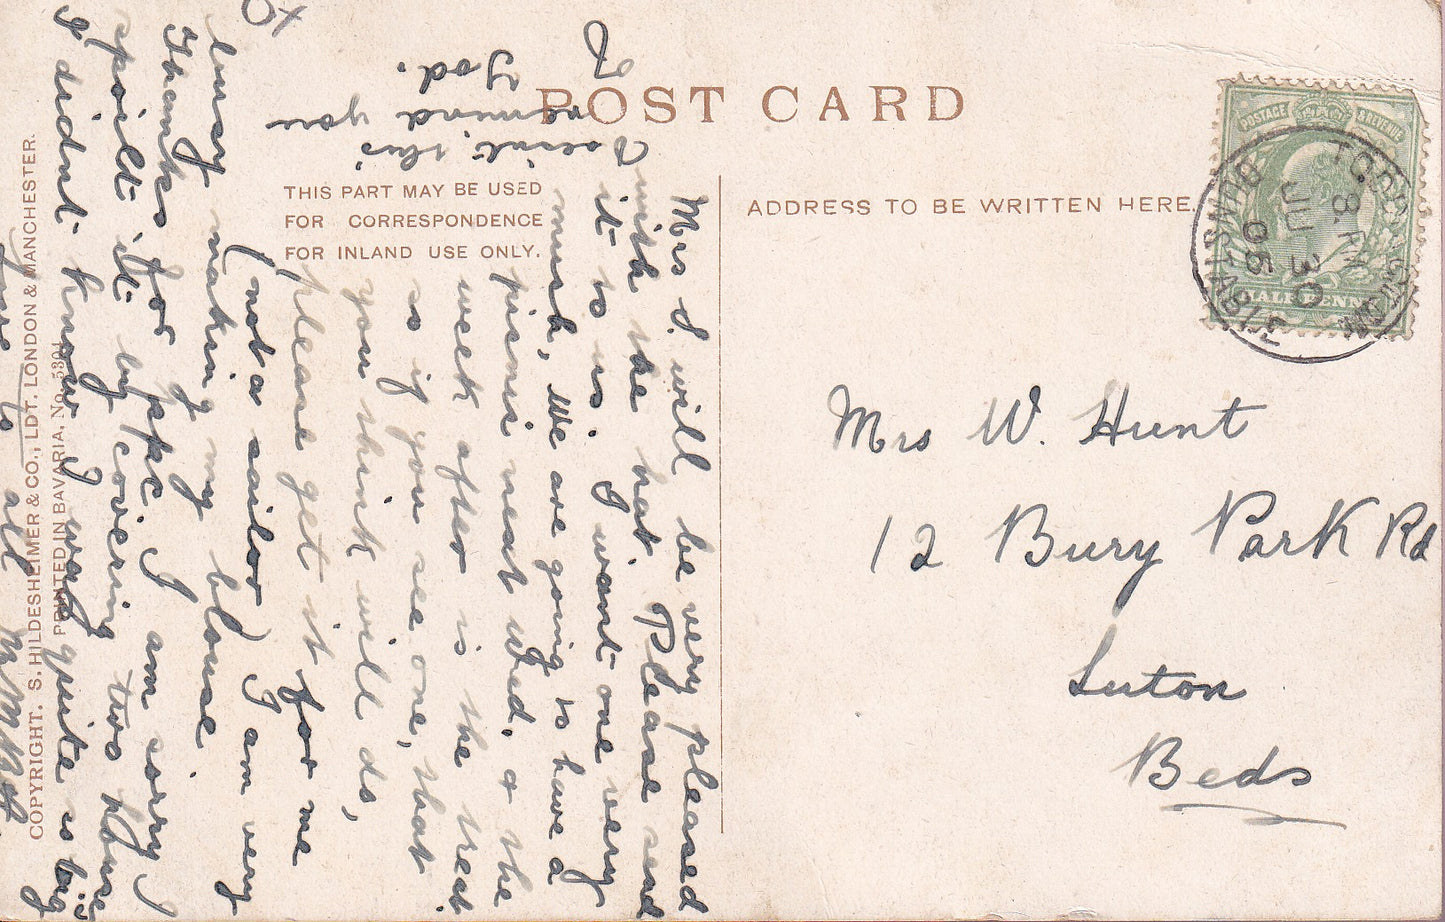 POST CARD
THIS PART MAY BE USED
FOR CORRESPONDENCE
FOR INLAND USE ONLY.
ADDRESS TO BE WRITTEN HERE.
POSTAGE & REVENUE
HALF PENNY
DUNSTABLE
8
JU 30
05
Mrs W. Hunt
12 Bury Park Rd
Luton
Beds
Mrs S. will be very pleased
with the hat. Please send
it to us. I want one very
much. We are going to have a
picnic next Wed. & the
week after is the treat
so if you see one, that
you think will do,
please get it for me
(not a sailor) I am very
busy making my blouse.
Thanks for ppc I am sorry I
spoilt it by covering two
I didnt know I was quite so big
love to all
this
remind you
COPYRIGHT. S. HILDESHEIMER & CO., LDT. LONDON & MANCHESTER.
PRINTED IN BAVARIA. No. 5301